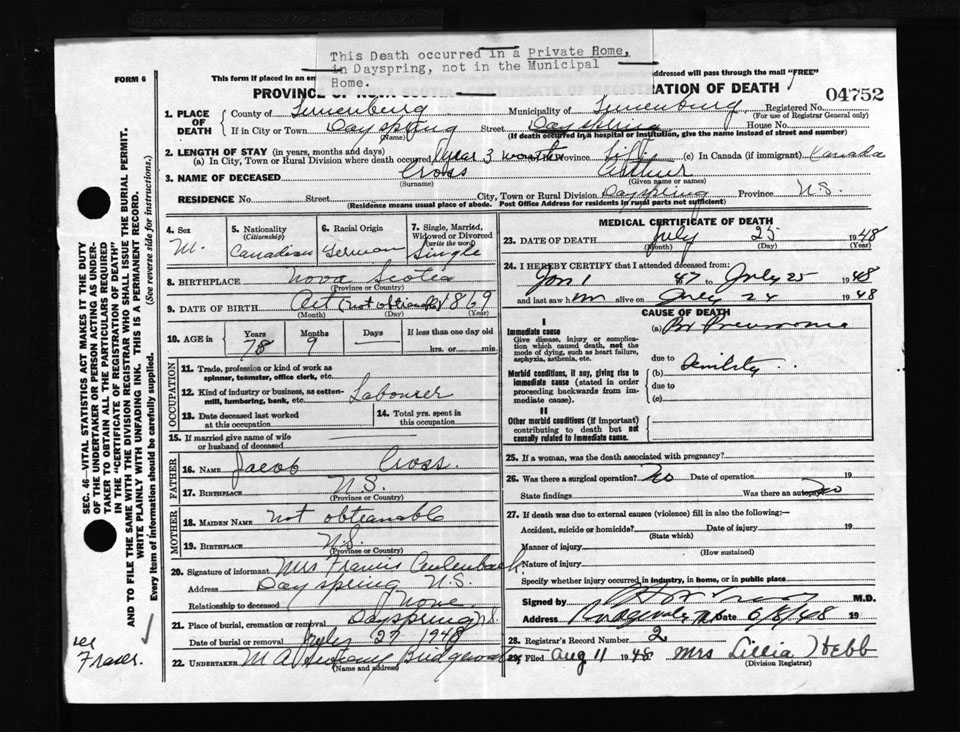 This Death occurred in a Private Home,
in Dayspring, not in the Municipal
Home.
FORM 6
This form if placed in an en
ddressed will pass through the mail "FREE"
PROVINCE OF NOVA SCOTIA—CERTIFICATE OF REGISTRATION OF DEATH
04752
1. PLACE OF DEATH
County of Lunenburg Municipality of Lunenburg Registered No.
(For use of Registrar General only)
If in City or Town Dayspring Street Dayspring House No.
(Name) (If death occurred in a hospital or institution, give the name instead of street and number)
2. LENGTH OF STAY (in years, months and days)
(a) In City, Town or Rural Division where death occurred 1 year 3 months Province Life (c) In Canada (if immigrant) Kanada
3. NAME OF DECEASED Cross Arthur
(Surname) (Given name or names)
RESIDENCE No. Street City, Town or Rural Division Dayspring Province N.S.
(Residence means usual place of abode. Post Office Address for residents in rural parts not sufficient)
4. Sex M.
5. Nationality (Citizenship) Canadian
6. Racial Origin German
7. Single, Married, Widowed or Divorced (write the word) Single
8. BIRTHPLACE Nova Scotia
(Province or Country)
9. DATE OF BIRTH Oct (not obtainable) 1869
(Month) (Day) (Year)
10. AGE in Years 78 Months 9 Days — If less than one day old
hrs. or min.
OCCUPATION
11. Trade, profession or kind of work as
spinner, teamster, office clerk, etc.
12. Kind of industry or business, as cotton-
mill, lumbering, bank, etc. Labourer
13. Date deceased last worked
at this occupation
14. Total yrs. spent in
this occupation
15. If married give name of wife
or husband of deceased
FATHER
16. NAME Jacob Cross.
17. BIRTHPLACE N.S.
(Province or Country)
MOTHER
18. MAIDEN NAME not obteanable
19. BIRTHPLACE N.S.
(Province or Country)
20. Signature of informant Mrs Francis
Address Dayspring N.S.
Relationship to deceased None
21. Place of burial, cremation or removal Dayspring N.S.
Date of burial or removal July 27 1948
22. UNDERTAKER M A Bridgewater
(Name and address)
MEDICAL CERTIFICATE OF DEATH
23. DATE OF DEATH July 25 1948
(Month) (Day) (Year)
24. I HEREBY CERTIFY that I attended deceased from:
Jan 1 47 to July 25 1948
and last saw him alive on July 24 1948
CAUSE OF DEATH
I
Immediate cause
Give disease, injury or complica-
tion which caused death, not the
mode of dying, such as heart failure,
asphyxia, asthenia, etc.
(a) Br Pneumonia
due to
Morbid conditions, if any, giving rise to
immediate cause (stated in order
proceeding backwards from im-
mediate cause).
(b) Senility
due to
(c)
II
Other morbid conditions (if important)
contributing to death but not
causally related to immediate cause.
25. If a woman, was the death associated with pregnancy?
26. Was there a surgical operation? No Date of operation 19
State findings Was there an autopsy? No
27. If death was due to external causes (violence) fill in also the following:—
Accident, suicide or homicide? Date of injury 19
(State which)
Manner of injury
(How sustained)
Nature of injury
Specify whether injury occurred in industry, in home, or in public place
Signed by M.D.
Address Date 6/8/48 19
28. Registrar's Record Number 2
29. Filed Aug 11 1948 Mrs Lillia Hebb
(Division Registrar)
SEC. 46—VITAL STATISTICS ACT MAKES IT THE DUTY
OF THE UNDERTAKER OR PERSON ACTING AS UNDER-
TAKER TO OBTAIN ALL THE PARTICULARS REQUIRED
IN THE "CERTIFICATE OF REGISTRATION OF DEATH"
AND TO FILE THE SAME WITH THE DIVISION REGISTRAR WHO SHALL ISSUE THE BURIAL PERMIT.
WRITE PLAINLY WITH UNFADING INK. THIS IS A PERMANENT RECORD.
Every item of information should be carefully supplied. (See reverse side for instructions.)